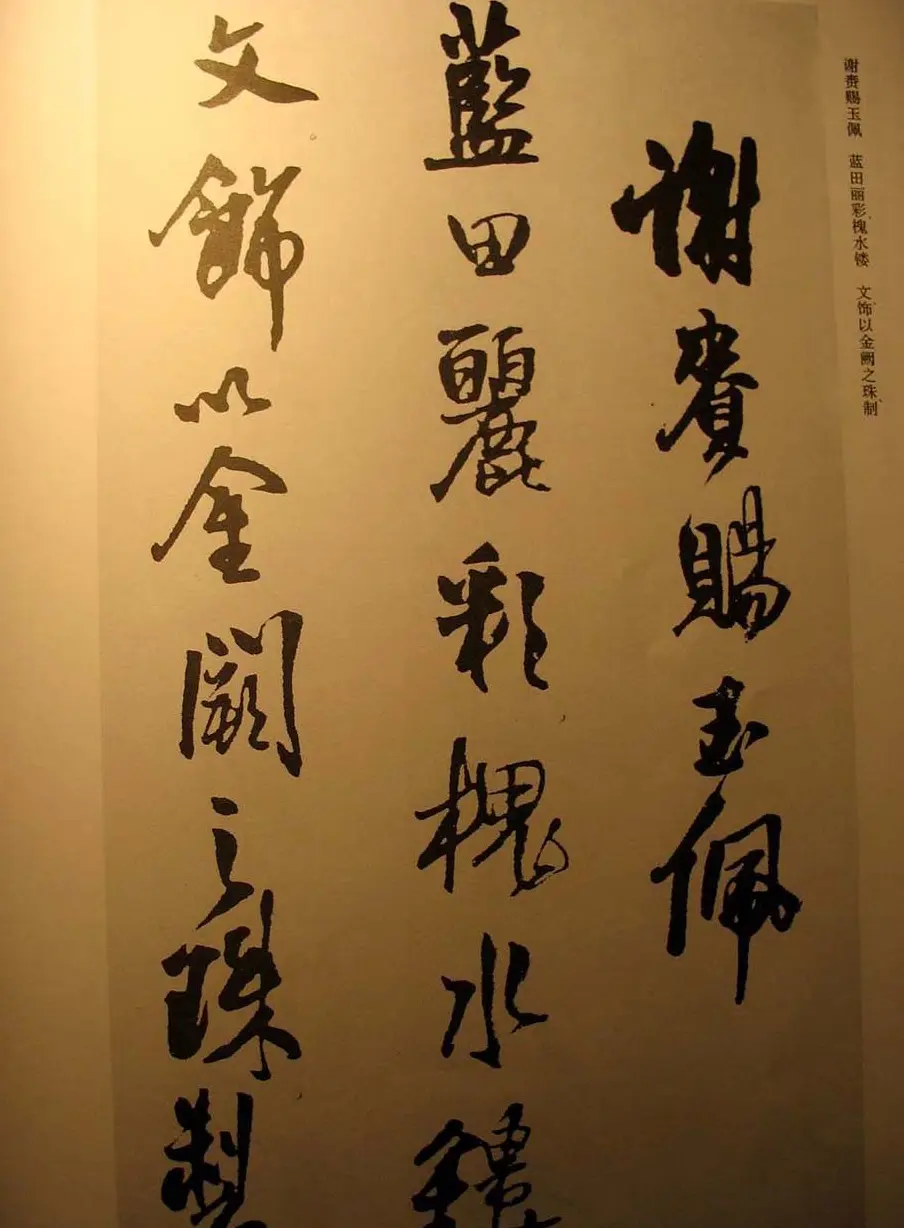 谢赉赐玉佩 蓝田丽彩、槐水镂 文、饰以金阙之珠、制
謝賚賜玉佩
藍田麗彩槐水鏤
文飾以金闕之珠製